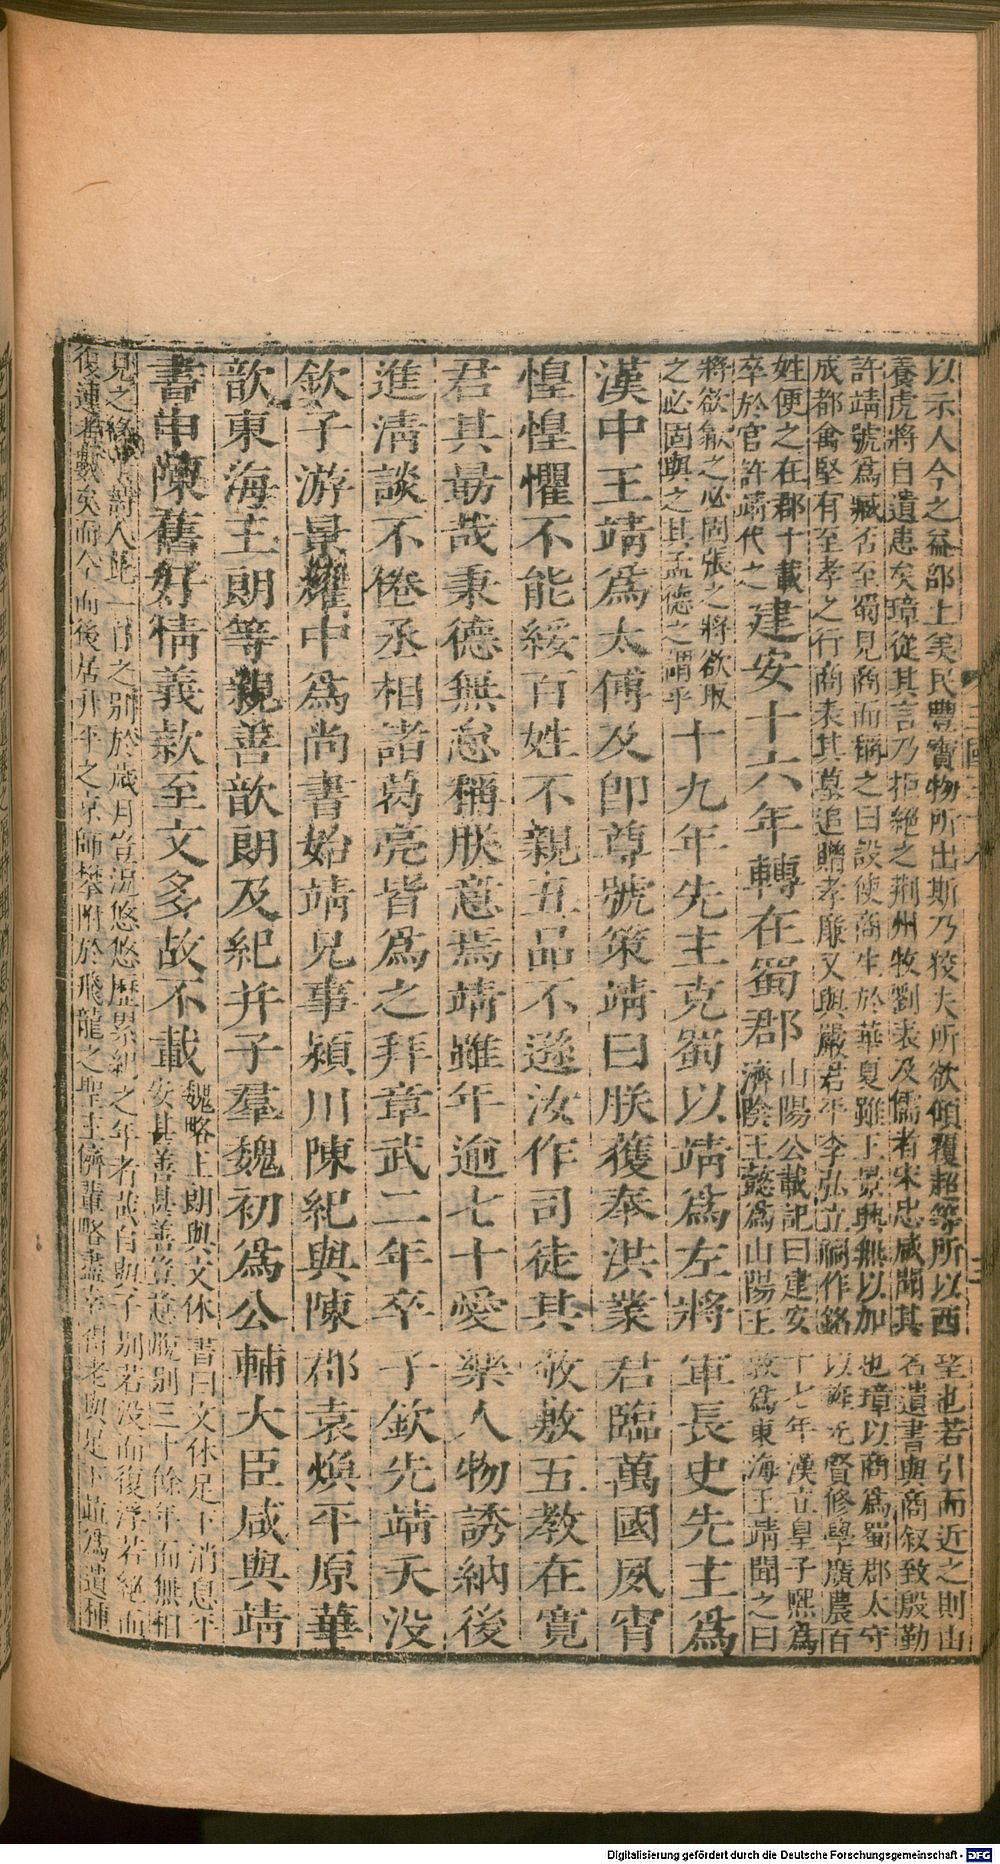 以示人今之益部土美民豐寶物所出斯乃狡夫所欲傾覆超等所以西望也若引而近之則由
養虎將自遺患矣璋從其言乃拒絕之荆州牧劉表及儒者宋忠咸聞其名遺書與商叙致殷勤
許靖號爲臧否至蜀見商而稱之曰設使商生於華夏雖王景興無以加也璋以商爲蜀郡太守
成都禽堅有至孝之行商表其墓追贈孝廉又與嚴君平李弘立祠作銘以旌先賢修學廣農百
姓便之在郡十載
卒於官許靖代之
建安十六年轉在蜀郡
山陽公載記曰建安十七年漢立皇子熙爲
濟陰王懿爲山陽王敦爲東海王靖聞之曰
將欲歙之必固張之將欲取
之必固與之其孟德之謂乎
十九年先主克蜀以靖爲左將軍長史先主爲
漢中王靖爲太傅及即尊號策靖曰朕獲奉洪業君臨萬國夙宵
惶惶懼不能綏百姓不親五品不遜汝作司徒其敬敷五教在寬
君其勗哉秉德無怠稱朕意焉靖雖年逾七十愛樂人物誘納後
進清談不倦丞相諸葛亮皆爲之拜章武二年卒子欽先靖夭没
欽子游景耀中爲尚書始靖兄事潁川陳紀與陳郡袁煥平原華
歆東海王朗等親善歆朗及紀并子羣魏初爲公輔大臣咸與靖
書申陳舊好情義款至文多故不載
魏略王朗與文休書曰文休足下消息平
安甚善甚善豈意脫別三十餘年而無相
見之緣乎詩人比一日之別於歲月豈況悠悠歷累紀之年者哉自與子別若没而復浮若絕而
復連者數矣而今而後居升平之京師攀附於飛龍之聖主儕輩略盡幸得老與足下並爲遺種
Digitalisierung gefördert durch die Deutsche Forschungsgemeinschaft - DFG